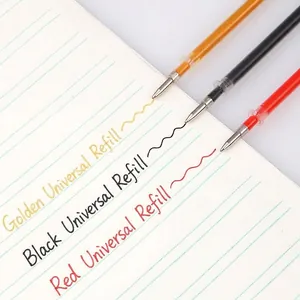 Golden Universal Refill
Black Universal Refill
Red Universal Refill